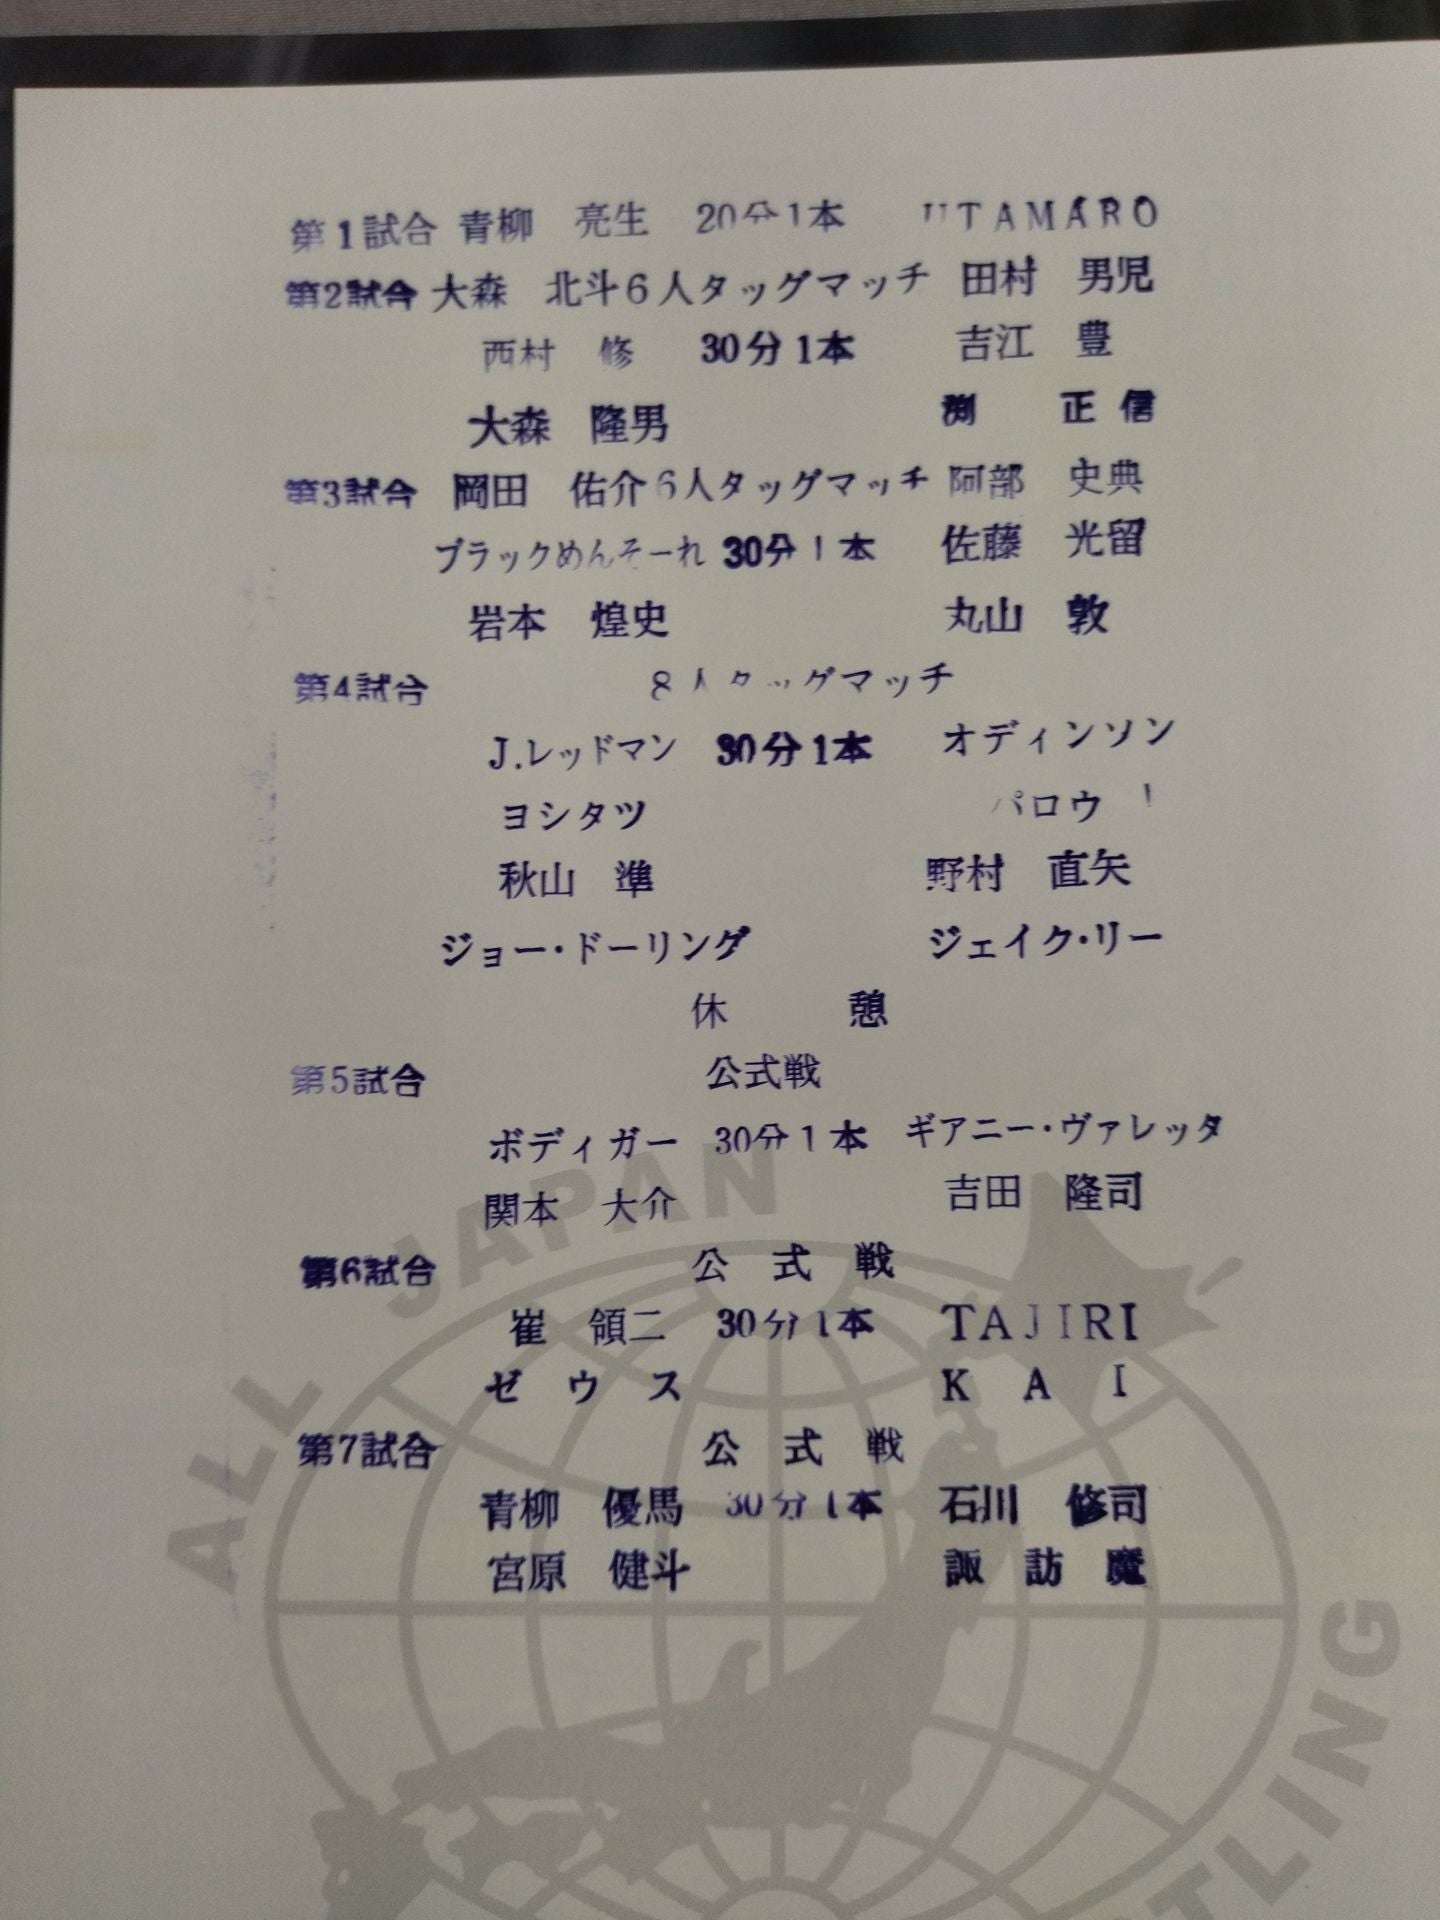 第1試合 青柳 亮生 20分1本 UTAMARO
第2試合 大森 北斗 6人タッグマッチ 田村 男児
西村 修 30分1本 吉江 豊
大森 隆男 渕 正信
第3試合 岡田 佑介 6人タッグマッチ 阿部 史典
ブラックめんそーれ 30分1本 佐藤 光留
岩本 煌史 丸山 敦
第4試合 8人タッグマッチ
J.レッドマン 30分1本 オディンソン
ヨシタツ パロウ !
秋山 準 野村 直矢
ジョー・ドーリング ジェイク・リー
休 憩
第5試合 公式戦
ボディガー 30分1本 ギアニー・ヴァレッタ
関本 大介 吉田 隆司
第6試合 公 式 戦
崔 領二 30分1本 TAJIRI
ゼ ウ ス K A I
第7試合 公 式 戦
青柳 優馬 30分1本 石川 修司
宮原 健斗 諏 訪 魔
ALL JAPAN TLING